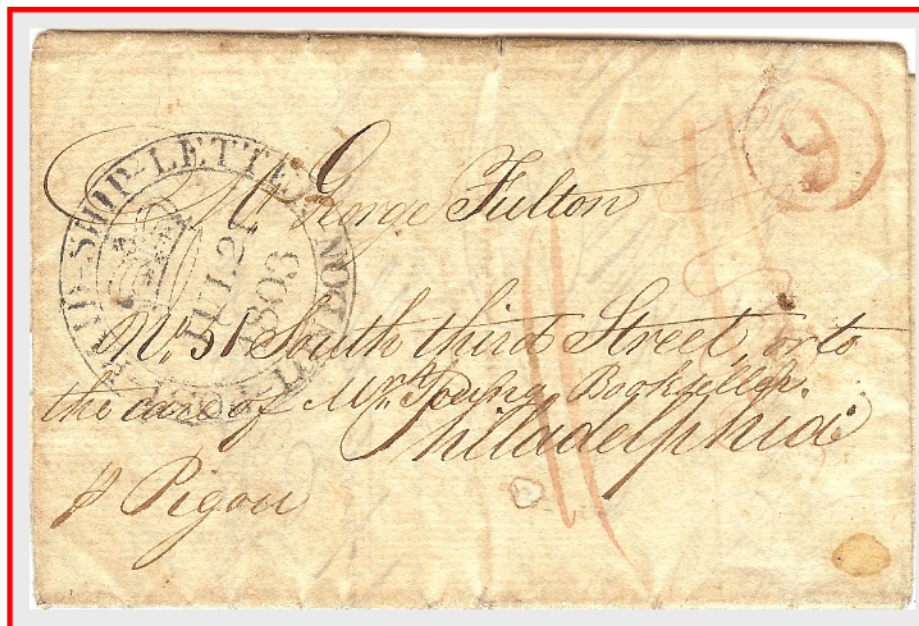 SHIP-LETTER
LONDON
JUL 21
1803
6
Mr. George Fulton
No. 51 South third Street, or to
the care of Mr. Young Bookseller.
Philadelphia
p Pigou